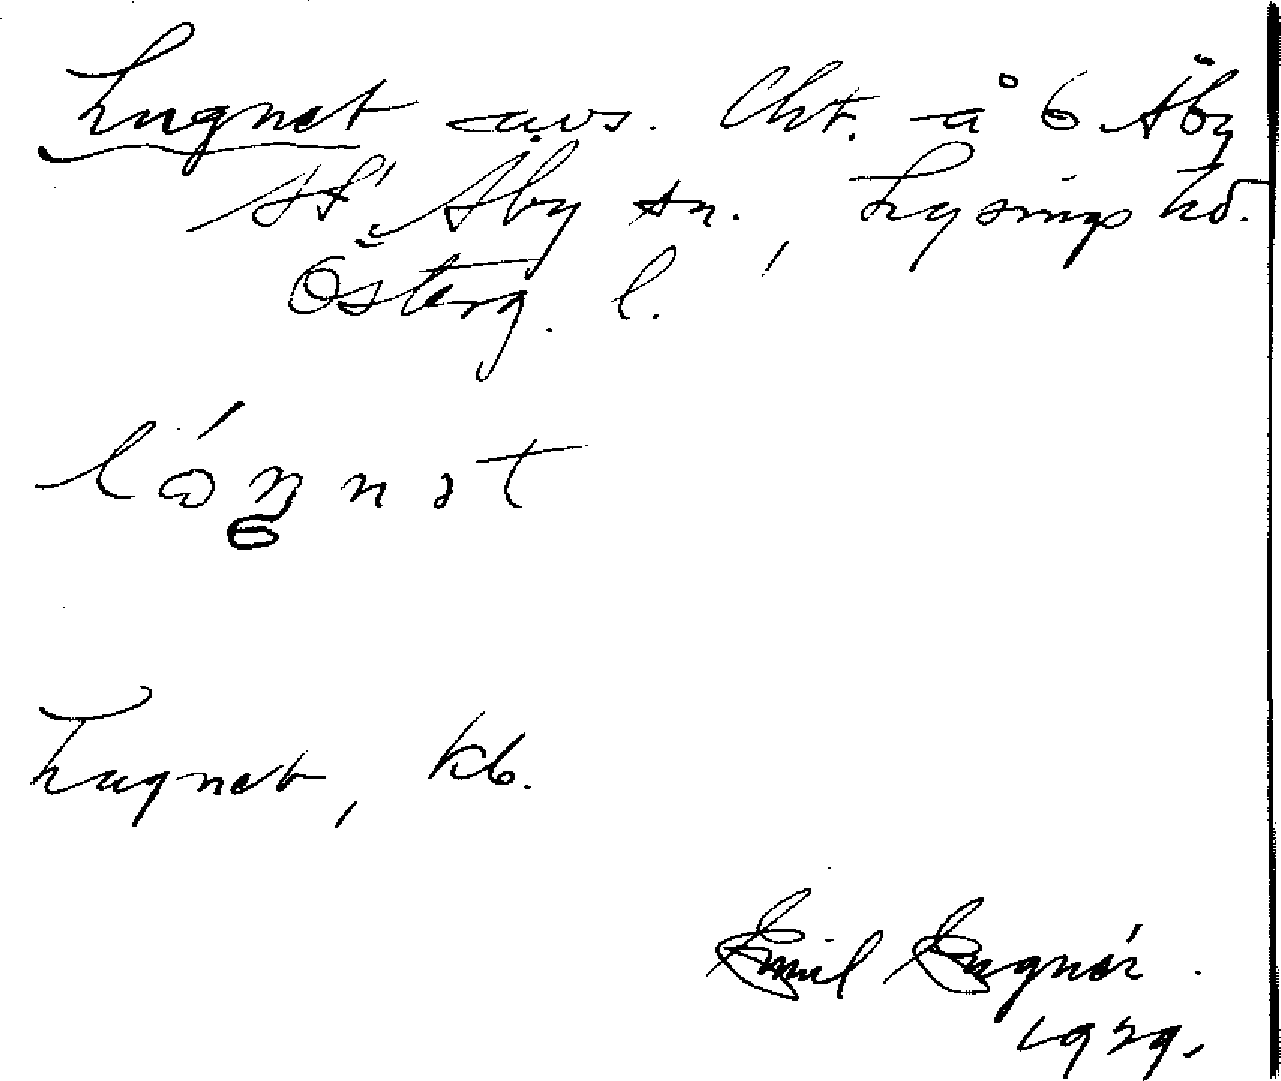 Lugnet avs. Cht. å 6 Åby
St. Åby sn., Lysings hd.
Österg. l.
Lugnet, kb.
Emil Engnér.
1929.